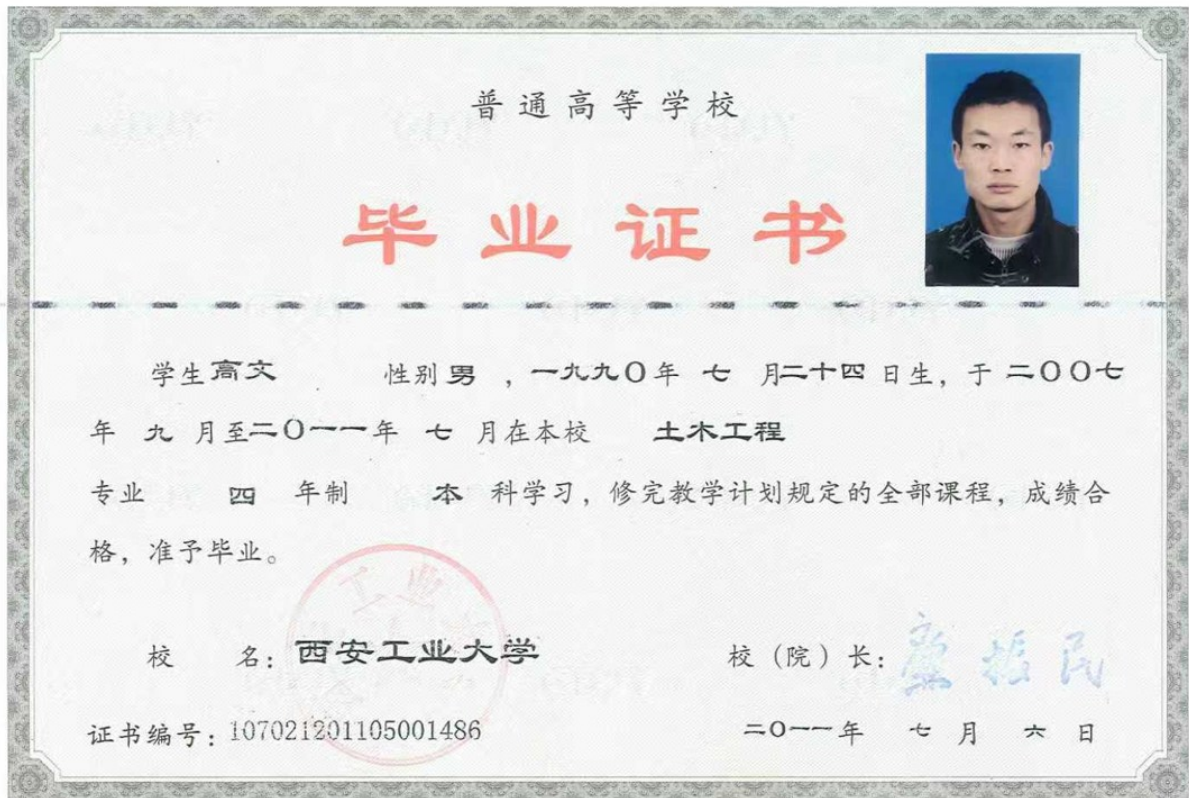 普通高等学校
毕业证书
学生高文 性别男，一九九〇年七月二十四日生，于二〇〇七
年九月至二〇一一年七月在本校 土木工程
专业 四 年制 本 科学习，修完教学计划规定的全部课程，成绩合
格，准予毕业。
工业
校 名：西安工业大学 校（院）长：
证书编号：107021201105001486 二〇一一年 七 月 六 日